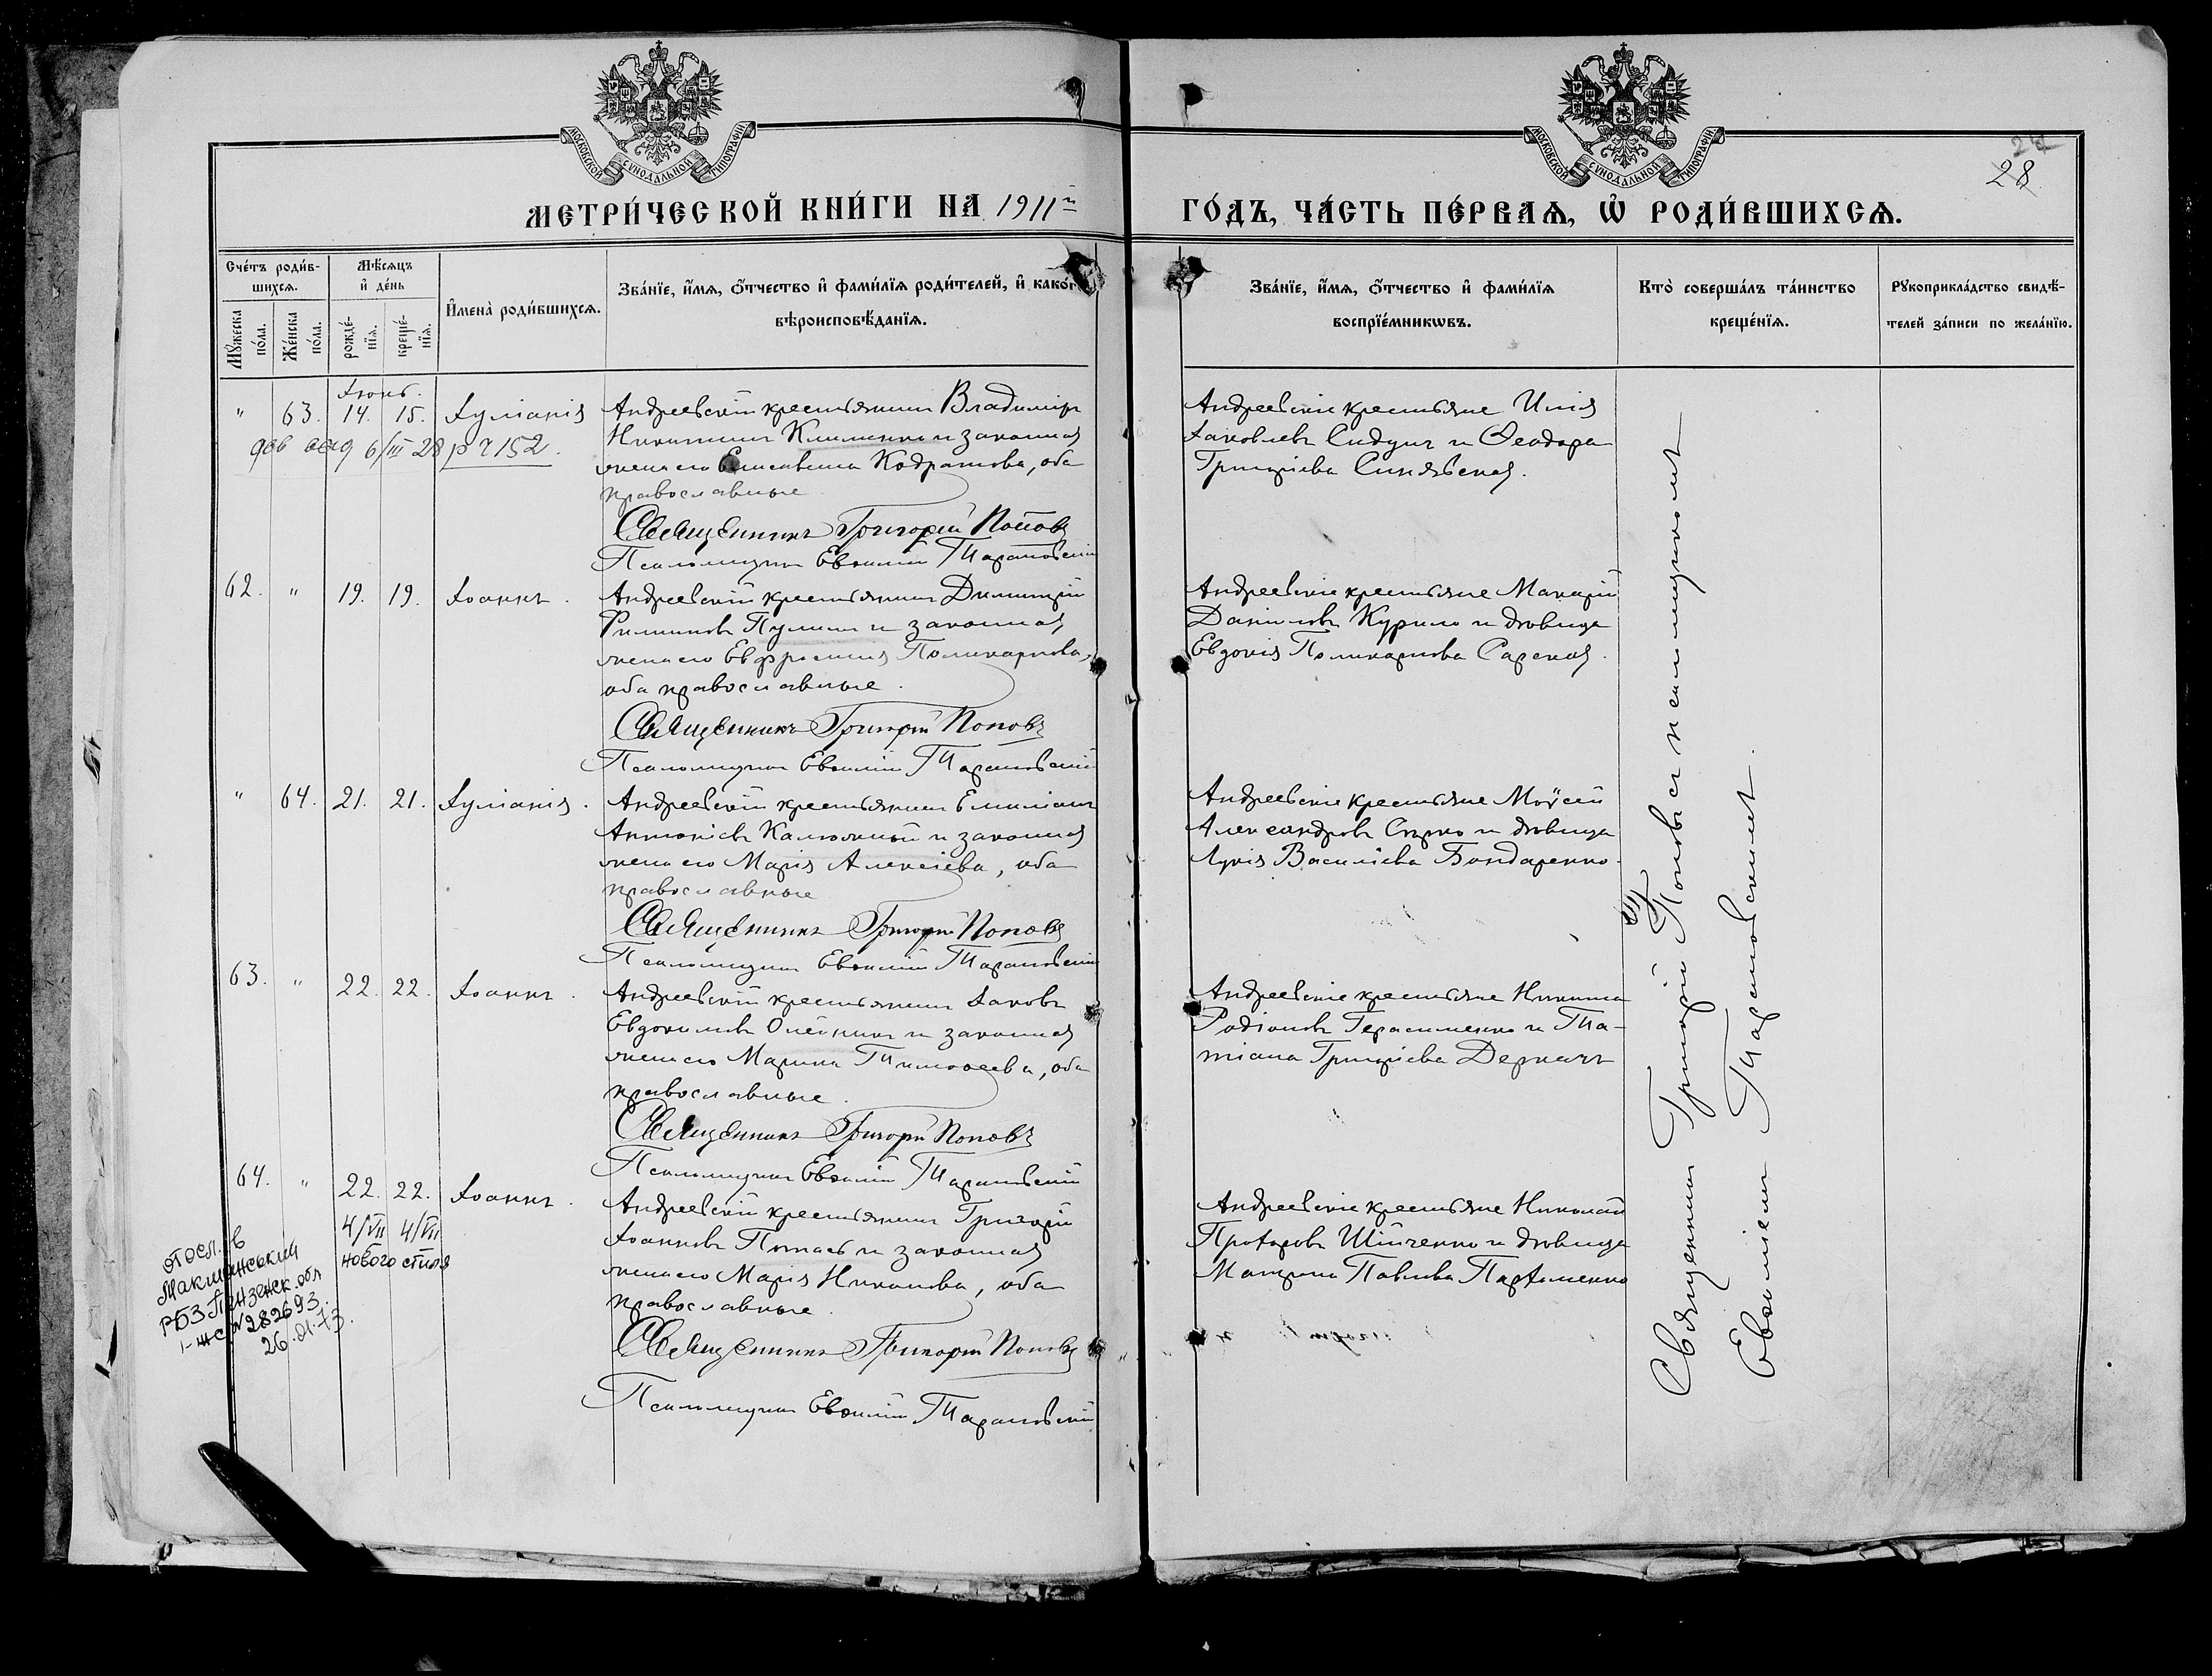 МОСКОВСКОЙ СУНОДАЛЬНОЙ ТИПОГРАФІИ
МОСКОВСКОЙ СУНОДАЛЬНОЙ ТИПОГРАФІИ
28
МЕТРИ́ЧЕСКОЙ КНИ́ГИ НА 1911й
ГО́ДЪ, ЧА́СТЬ ПЕ́РВАѦ, Ѡ҆ РОДИ́ВШИХСѦ.
Сче́тъ роди́в-
шихсѧ.
Мꙋ́жеска по́ла.
Же́нска по́ла.
Мѣ́сѧцъ
и҆ де́нь
рожде́-
нїѧ.
креще́-
нїѧ.
И҆мена̀ роди́вшихсѧ.
Зва́нїе, и҆́мѧ, ѻ҆́тчество и҆ фами́лїѧ роди́телей, и҆ како́гѡ
вѣроисповѣ́данїѧ.
Зва́нїе, и҆́мѧ, ѻ҆́тчество и҆ фами́лїѧ
воспрїе́мникѡвъ.
Кто̀ соверша́лъ та́инство
креще́нїѧ.
Рꙋкоприкла́дство свидѣ́-
телей за́писи по жела́нїю.
Іюнь.
" 63. 14. 15. Іуліанія
6/III 28 р 7152.
Андреевскій крестьянинъ Владиміръ
Никитинъ Клименко и законная
жена его Елисавета Кодратова, оба
православные
Священникъ Григорій Поповъ
Псаломщикъ Евѳимій Тарановскій
Андреевскіе крестьяне Илія
Іаковлевъ Сидунъ и Ѳеодора
Григоріева Синявская.
62. " 19. 19. Іоаннъ.
Андреевскій крестьянинъ Димитрій
Филиповъ Пулинъ и законная
жена его Евфросинія Поликарпова,
оба православные.
Священникъ Григорій Поповъ
Псаломщикъ Евѳимій Тарановскій
Андреевскіе крестьяне Макарій
Даніиловъ Курило и дѣвица
Евдокія Поликарпова Сарская.
" 64. 21. 21. Іуліанія.
Андреевскій крестьянинъ Емиліанъ
Антоніевъ Калюжный и законная
жена его Марія Алексіева, оба
православные
Священникъ Григорій Поповъ
Псаломщикъ Евѳимій Тарановскій
Андреевскіе крестьяне Моѵсей
Александровъ Сирко и дѣвица
Лукія Василіева Бондаренко.
63. " 22. 22. Іоаннъ.
Андреевскій крестьянинъ Іаковъ
Евдокимовъ Олейникъ и законная
жена его Марина Тимоѳеева, оба
православные.
Священникъ Григорій Поповъ
Псаломщикъ Евѳимій Тарановскій
Андреевскіе крестьяне Никита
Родіоновъ Герасименко и Та-
тіана Григоріева Деркачъ
64. " 22. 22. Іоаннъ.
4/VII 4/VII
нового стиля
Андреевскій крестьянинъ Григорій
Іоанновъ Поташъ и законная
жена его Марія Никонова, оба
православные.
Священникъ Григорій Поповъ
Псаломщикъ Евѳимій Тарановскій
Андреевскіе крестьяне Николай
Прохоровъ Шійченко и дѣвица
Матрона Павлова Пархоменко
посл. в
Мокшанський
РБЗ Пензенск. обл
І-ЖС № 282693.
26.01.73.
Священникъ Григорій Поповъ съ псаломщикомъ
Евѳиміемъ Тарановскимъ.